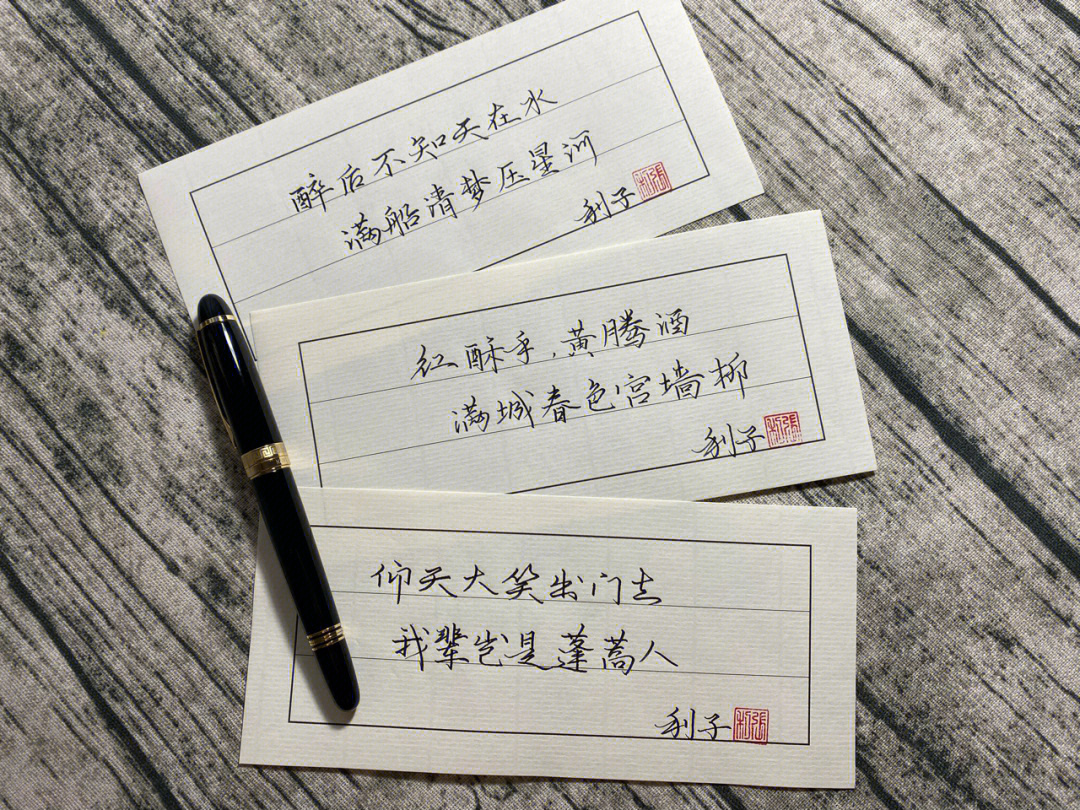 醉后不知天在水
满船清梦压星河
利子
红酥手，黄腾酒
满城春色宫墙柳
利子
仰天大笑出门去
我辈岂是蓬蒿人
利子